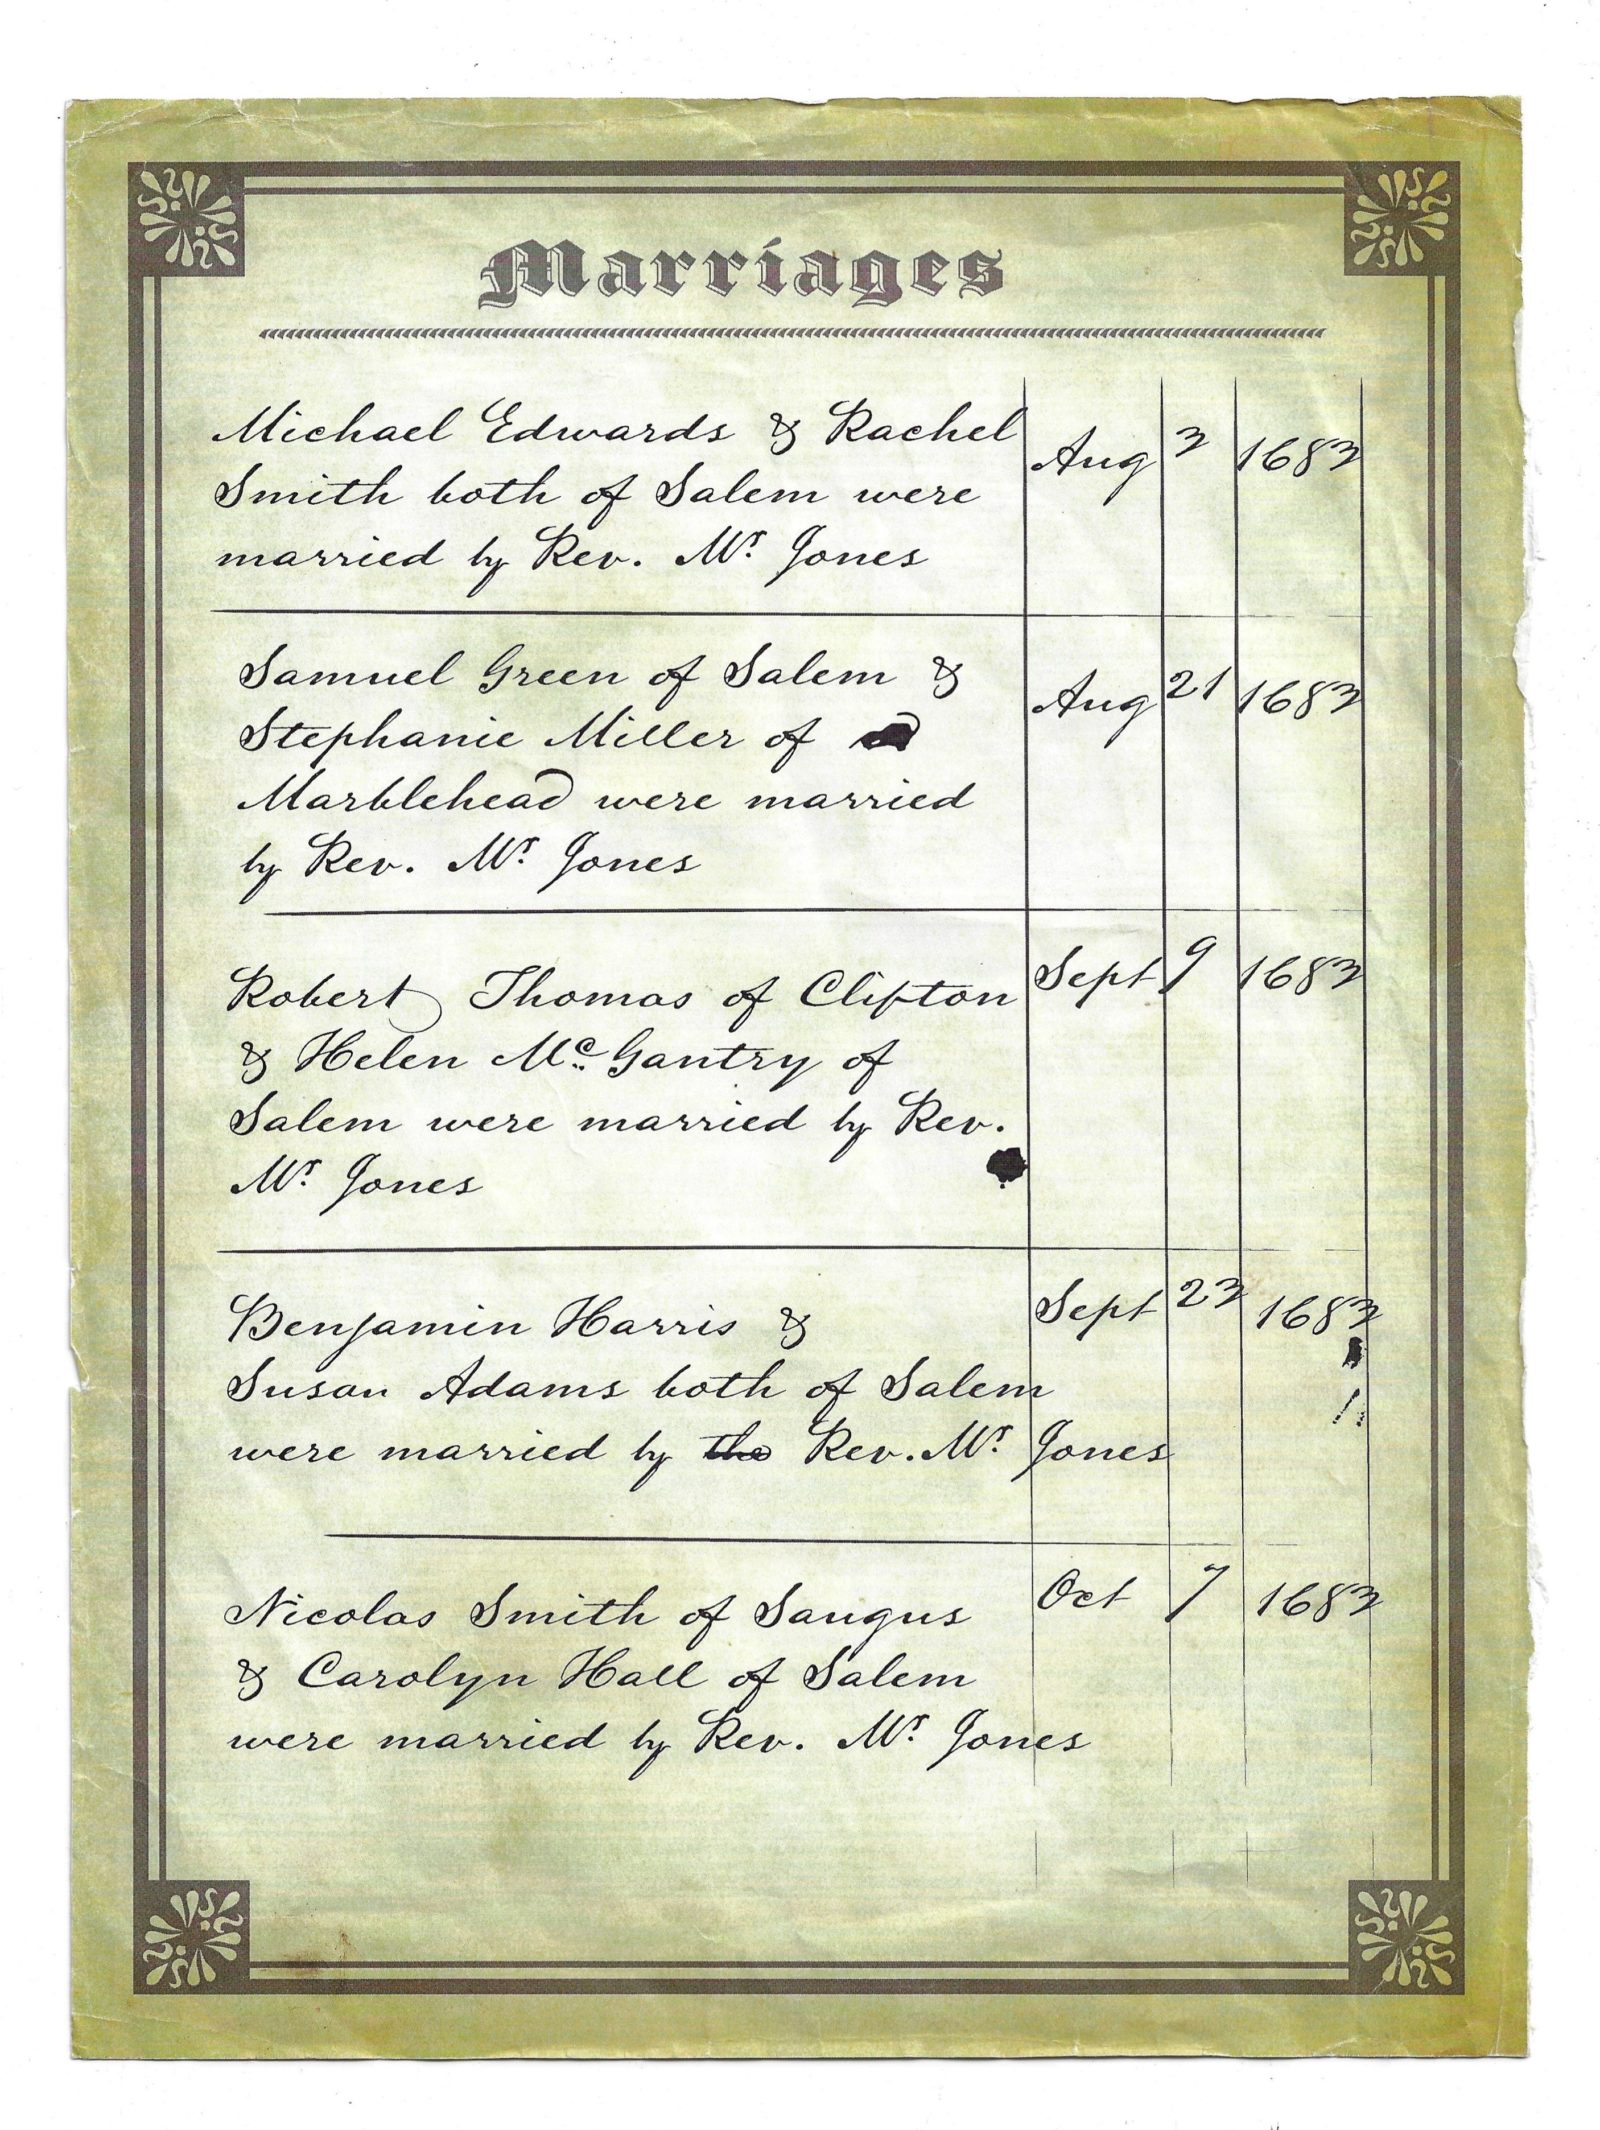 Marriages
Michael Edwards & Rachel
Smith both of Salem were
married by Rev. Mr. Jones
Aug 3 1683
Samuel Green of Salem &
Stephanie Miller of
Marblehead were married
by Rev. Mr. Jones
Aug 21 1683
Robert Thomas of Clifton
& Helen Mc. Gantry of
Salem were married by Rev.
Mr. Jones
Sept 9 1683
Benjamin Harris &
Susan Adams both of Salem
were married by the Rev. Mr. Jones
Sept 23 1683
Nicolas Smith of Saugus
& Carolyn Hall of Salem
were married by Rev. Mr. Jones
Oct 7 1683